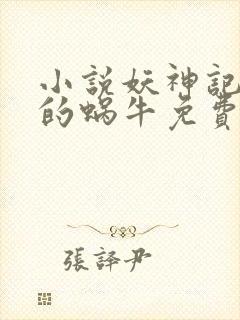 小説妖神記
的蝸牛免費
張譯尹